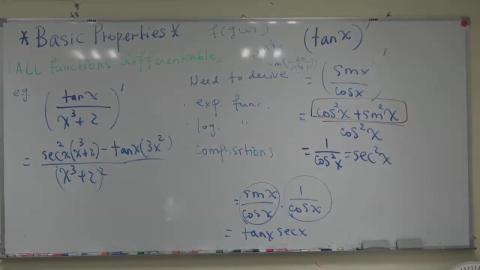 *Basic Properties*
ALL functions differentiable.
e.g. (tanx / x³+2)'
= sec²x(x³+2) - tanx(3x²) / (x³+2)²
f(g(x))
Need to derive
exp. func.
log. "
compositions
(tanx)'
= (sinx / cosx)'
= cos²x + sin²x / cos²x
= 1 / cos²x = sec²x
= sinx / cosx · 1 / cosx
= tanx secx